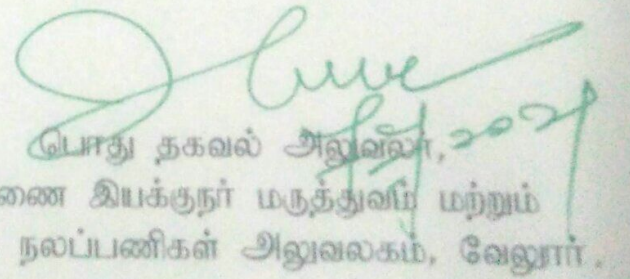 பொது தகவல் அலுவலர்,
ணை இயக்குநர் மருத்துவம் மற்றும்
நலப்பணிகள் அலுவலகம், வேலூர்.